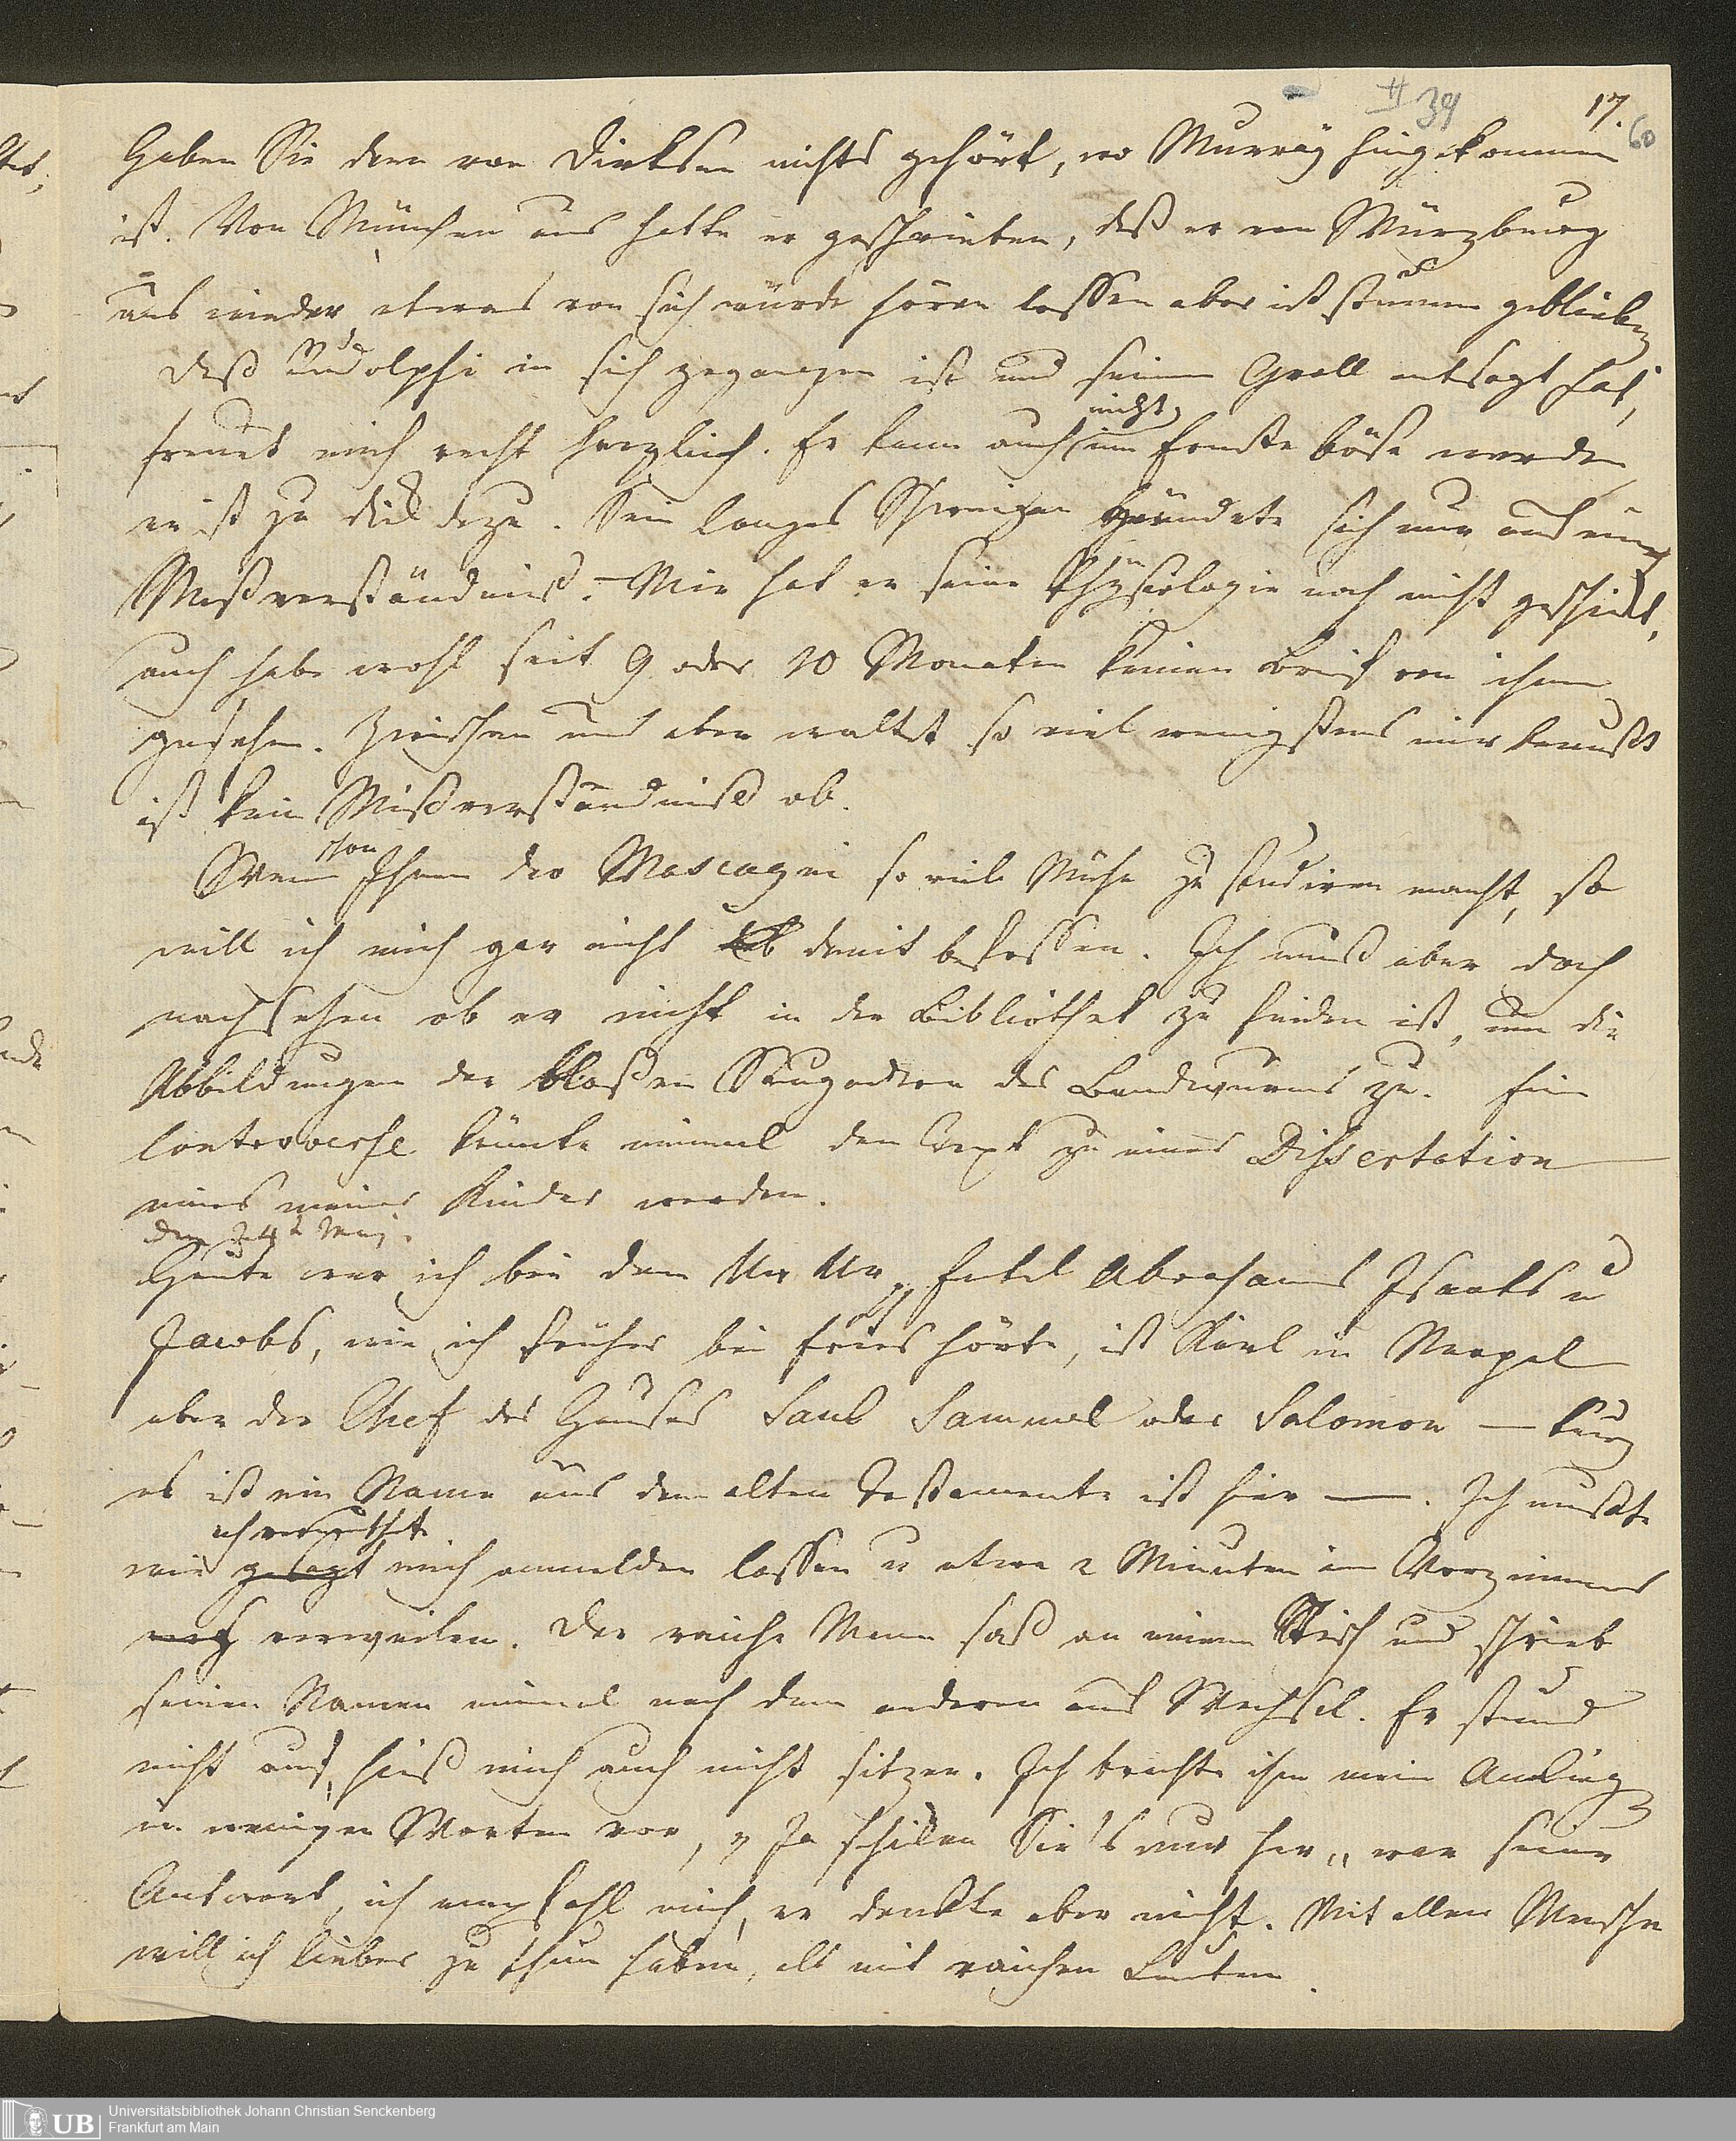 # 39
17.
60
Haben Sie denn von Dirksen nichts gehört, wo Murray hingekommen
ist. Von München aus hatte er geschrieben, daß er von Würzburg
aus wieder etwas von sich würde hören lassen aber ist stumm geblieben
Daß Rudolphi in sich gegangen ist und seinem Groll entsagt hat,
freuet mich recht herzlich. Er kann auch nicht im Ernste böse werden
er ist zu dick dazu. Sein langes Schweigen gründete sich nur auf ein
Mißverständniß. – Mir hat er seine Physiologie noch nicht geschickt,
auch habe wohl seit 9 oder 10 Monaten keinen Brief von ihm
gesehen. Zwischen uns aber waltet so viel wenigstens mir bewußt
ist kein Mißverständniß ob.
Wenn schon Ihnen der Mascagni so viele Mühe zu studiren macht, so
will ich mich gar nicht damit befassen. Ich muß aber doch
nachsehen ob er nicht in der Bibliothek zu finden ist, um die
Abbildungen der bloßen Saugadern des Bandwurms zu. Eine
Controverse könnte einmal den Text zu einer Dissertation
eines meiner Kinder werden.
den 24t May.
Heute war ich bei dem Ur Ur Enkel Abrahams Isaaks u
Jacobs, wie ich früher bei Fries hörte, ist Karl in Neapel
aber der Chef des Hauses Saul Samuel oder Salomon — kurz
es ist ein Name aus dem alten Testamente ist hier —. Ich mußte
wie ich vermuthete gesagt mich anmelden lassen u etwa 2 Minuten im Vorzimmer
verweilen. Der reiche Mann saß an einem Tisch und schrieb
seinen Namen einmal nach dem anderen auf Wechsel. Er stund
nicht auf, hieß mich auch nicht sitzen. Ich brachte ihm mein Anlieg
in wenigen Worten vor, „Ja schicken Sie's nur her„ war seine
Antwort, ich empfahl mich, er dankte aber nicht. Mit allen Menschen
will ich lieber zu thun haben, als mit reichen Leuten.
UB
Universitätsbibliothek Johann Christian Senckenberg
Frankfurt am Main